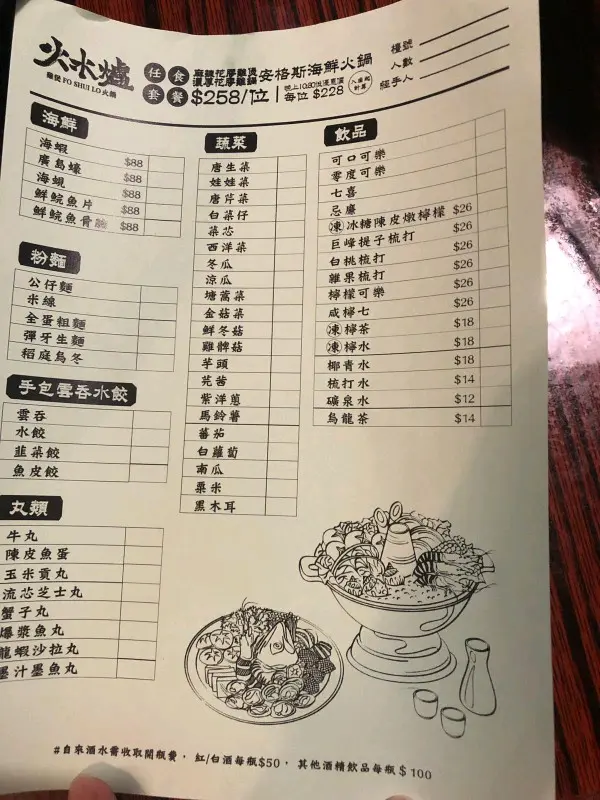 火水爐
雞煲 FO SHUI LO 火鍋
任食套餐
麻辣花膠雞煲
濃厚花膠雞鍋
安格斯海鮮火鍋
$258/位
晚上10:30後優惠價
每位 $228
入座起計算
檯號
人數
經手人
海鮮
海蝦 $88
廣島蠔 $88
海蜆 $88
鮮鯇魚片 $88
鮮鯇魚骨腩 $88
粉麵
公仔麵
米線
全蛋粗麵
彈牙生麵
稻庭烏冬
手包雲吞水餃
雲吞
水餃
韮菜餃
魚皮餃
丸類
牛丸
陳皮魚蛋
玉米貢丸
流芯芝士丸
蟹子丸
爆漿魚丸
龍蝦沙拉丸
墨汁墨魚丸
蔬菜
唐生菜
娃娃菜
唐芹菜
白菜仔
菜芯
西洋菜
冬瓜
涼瓜
塘蒿菜
金菇菜
鮮冬菇
雞髀菇
芋頭
芫茜
紫洋蔥
馬鈴薯
蕃茄
白蘿蔔
南瓜
粟米
黑木耳
飲品
可口可樂
零度可樂
七喜
忌廉
凍冰糖陳皮燉檸檬 $26
巨峰提子梳打 $26
白桃梳打 $26
雜果梳打 $26
檸檬可樂 $26
咸檸七 $26
凍檸茶 $18
凍檸水 $18
椰青水 $18
梳打水 $14
礦泉水 $12
烏龍茶 $14
#自來酒水需收取開瓶費，紅/白酒每瓶$50，其他酒精飲品每瓶$100